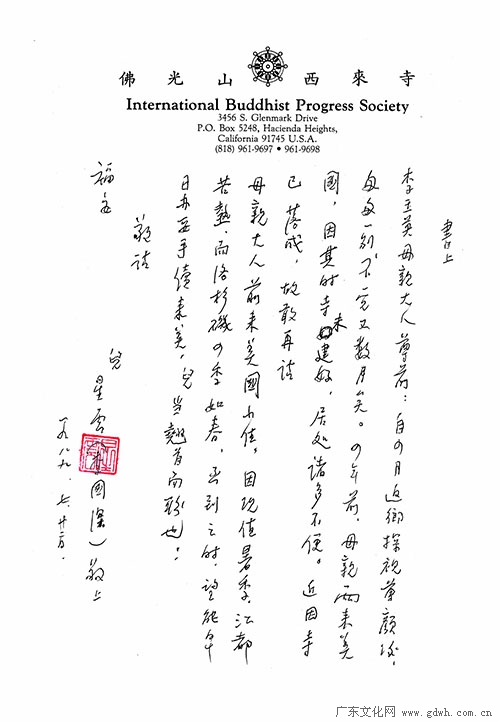 佛光山西來寺
International Buddhist Progress Society
3456 S. Glenmark Drive
P.O. Box 5248, Hacienda Heights,
California 91745 U.S.A.
(818) 961-9697 • 961-9698
書上
李玉英母親大人尊前：自四月返鄉探視尊顏後，
匆匆一別，不覺又數月矣。四年前，母親兩來美
國，因其時寺未建好，居處諸多不便。近因寺
已落成，故敢再請
母親大人前來美國小住，因現值暑季，江都
苦熱，而洛杉磯四季如春，函到之時，望能早
日辦妥手續來美，兒當翹首而盼也！
敬請
福安
兒
星雲（李國深）敬上
一九八九.七.廿六.
广东文化网 : www.gdwh.com.cn